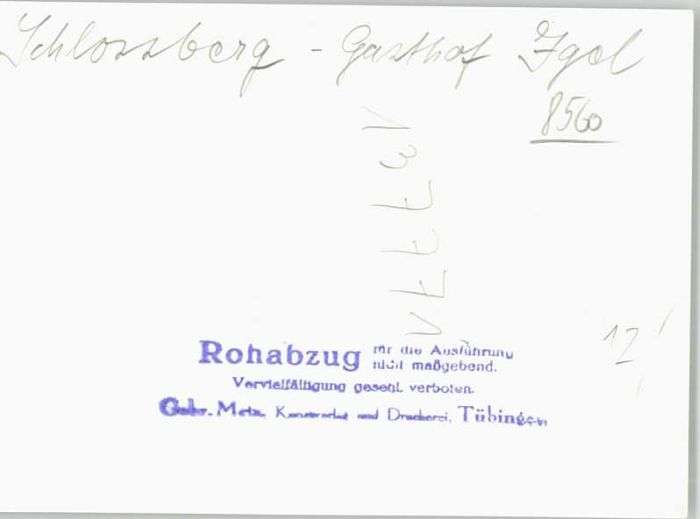 Schlossberg - Gasthof Igel
8560
137771
12
Rohabzug für die Ausführung
nicht maßgebend.
Vervielfältigung gesetzl. verboten.
Gebr. Metz, Kunstverlag und Druckerei, Tübingen